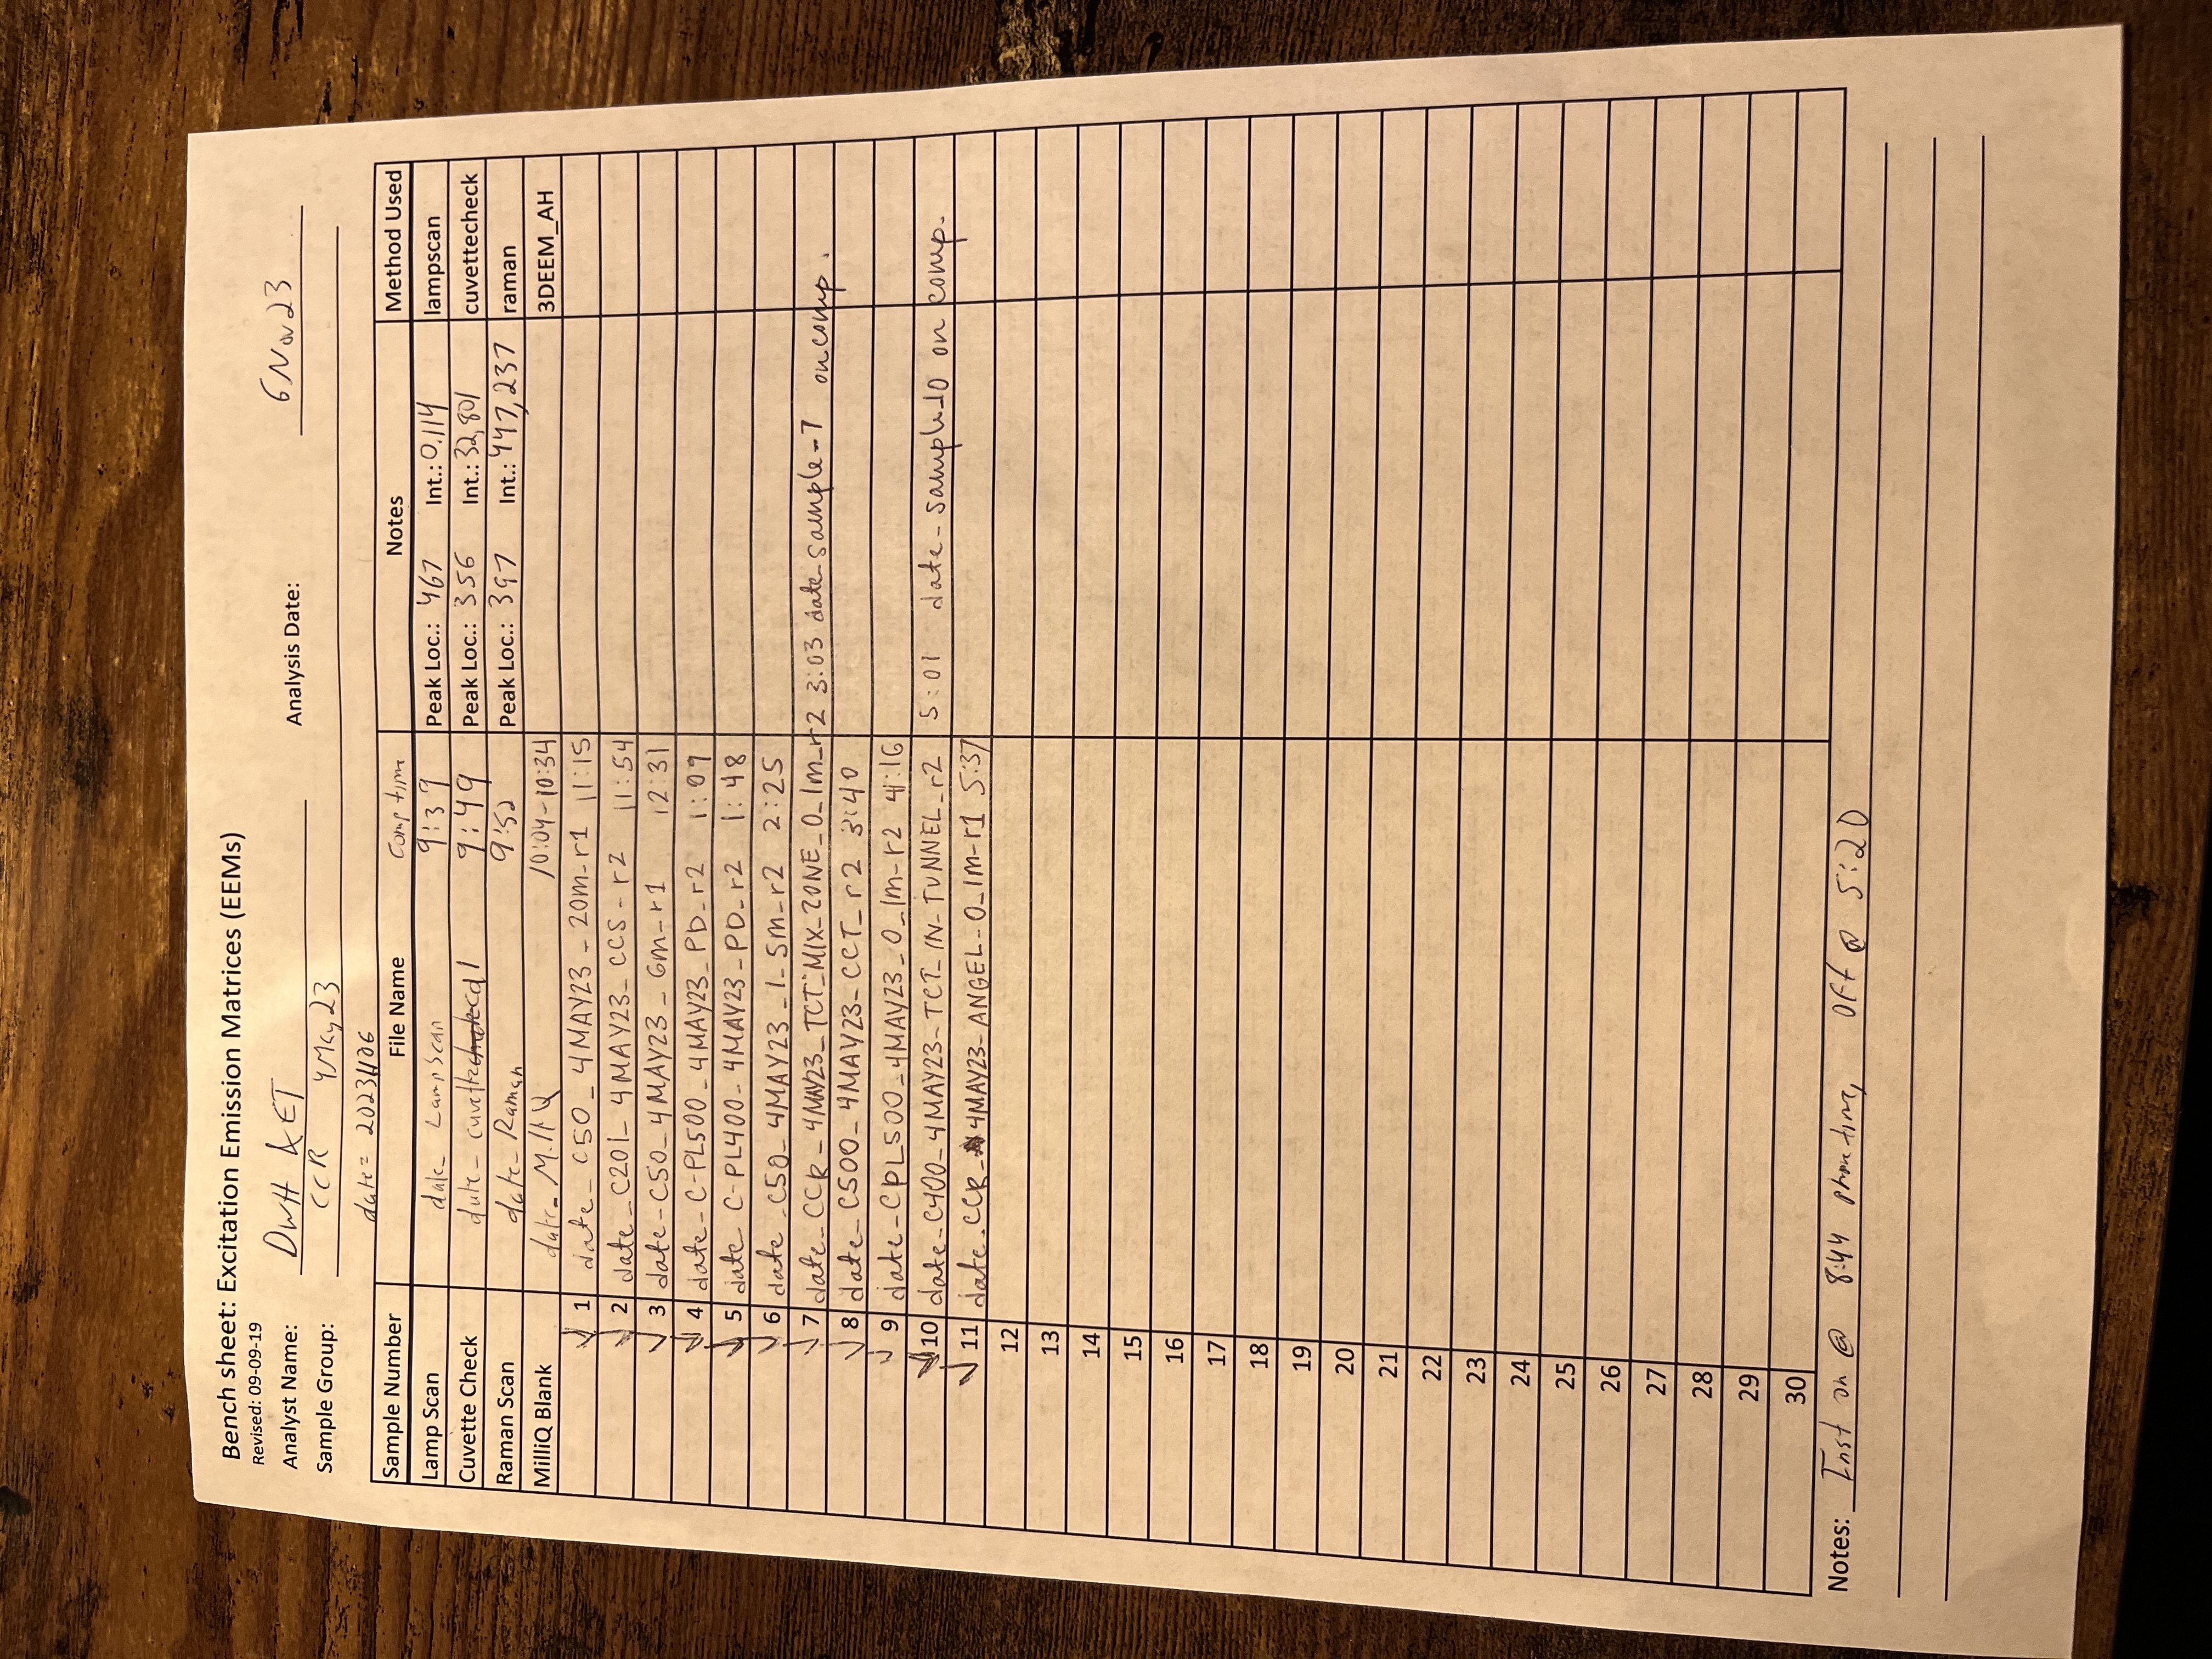 Bench sheet: Excitation Emission Matrices (EEMs)
Revised: 09-09-19
Analyst Name: DWH & ET Analysis Date: 6Nov23
Sample Group: CCR 4May23
date= 20231106
Sample Number File Name Comp time Notes Method Used
Lamp Scan date_ LampScan 9:39 Peak Loc.: 467 Int.: 0.114 lampscan
Cuvette Check date_ cuvettecd1 9:49 Peak Loc.: 356 Int.: 32,801 cuvettecheck
Raman Scan date_Raman 9:52 Peak Loc.: 397 Int.: 447,237 raman
MilliQ Blank date_ MilliQ 10:04-10:34 3DEEM_AH
1 date_C50_4MAY23_20m-r1 11:15
2 date_C201_4MAY23_CCS-r2 11:54
3 date-C50_4MAY23_6m-r1 12:31
4 date_C-PL500_4MAY23_PD_r2 1:09
5 date C-PL400_4MAY23_PD_r2 1:48
6 date_C50_4MAY23_1_5m-r2 2:25
7 date_CCR_4MAY23_TCT-MIX-ZONE_0_1m-r2 3:03 date_sample-7 on comp.
8 date_C500_4MAY23_CCT_r2 3:40
9 date_CPL500_4MAY23_0_1m-r2 4:16
10 date_C400_4MAY23_TCT_IN_TUNNEL_r2 5:01 date_sample10 on comp.
11 date_CCR_4MAY23_ANGEL_0_1m-r1 5:37
12
13
14
15
16
17
18
19
20
21
22
23
24
25
26
27
28
29
30
Notes: Inst on @ 8:44 phone time, Off @ 5:20